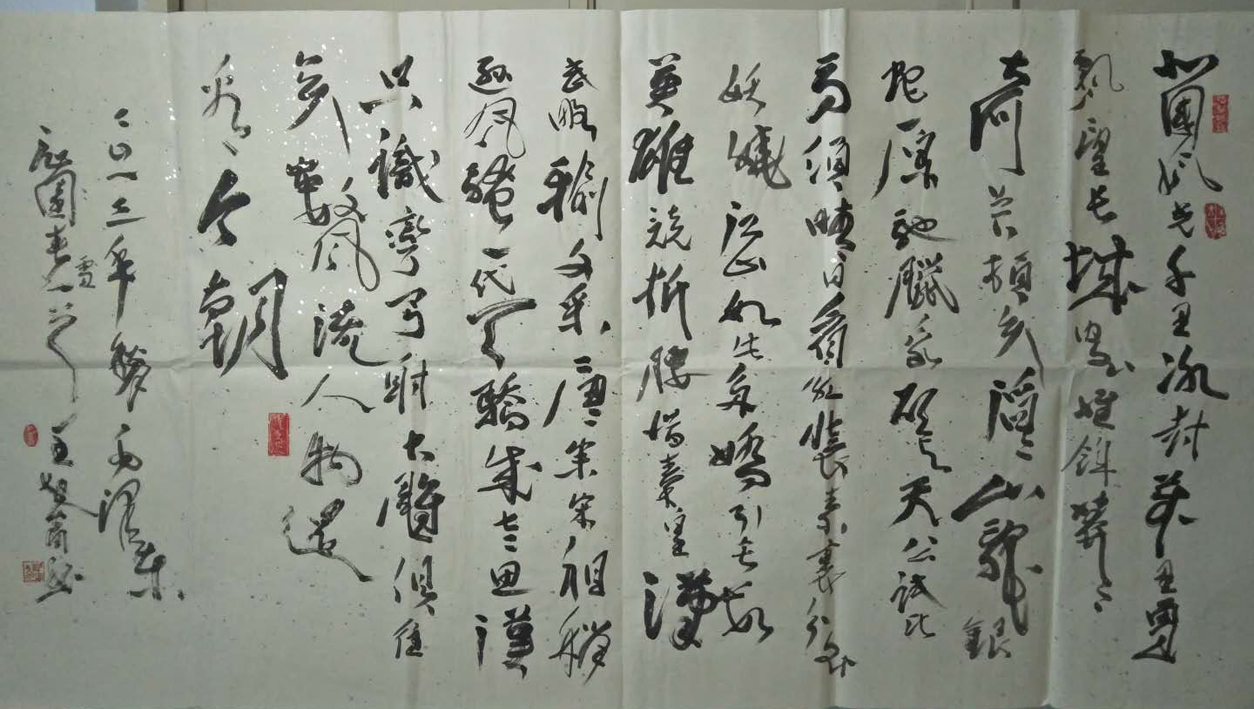 北國風光千里冰封萬里雪
飄望長城內外惟餘莽莽
大河上下頓失滔滔山舞銀
蛇原馳臘象欲与天公試比
高須晴日看紅裝素裹分外
妖嬈江山如此多嬌引無數
英雄競折腰惜秦皇漢
武略輸文采唐宗宋祖稍
遜風騷一代天驕成吉思漢
只識彎弓射大雕俱往
矣數風流人物還
看今朝
二〇一三年毛澤東
沁園春雪王